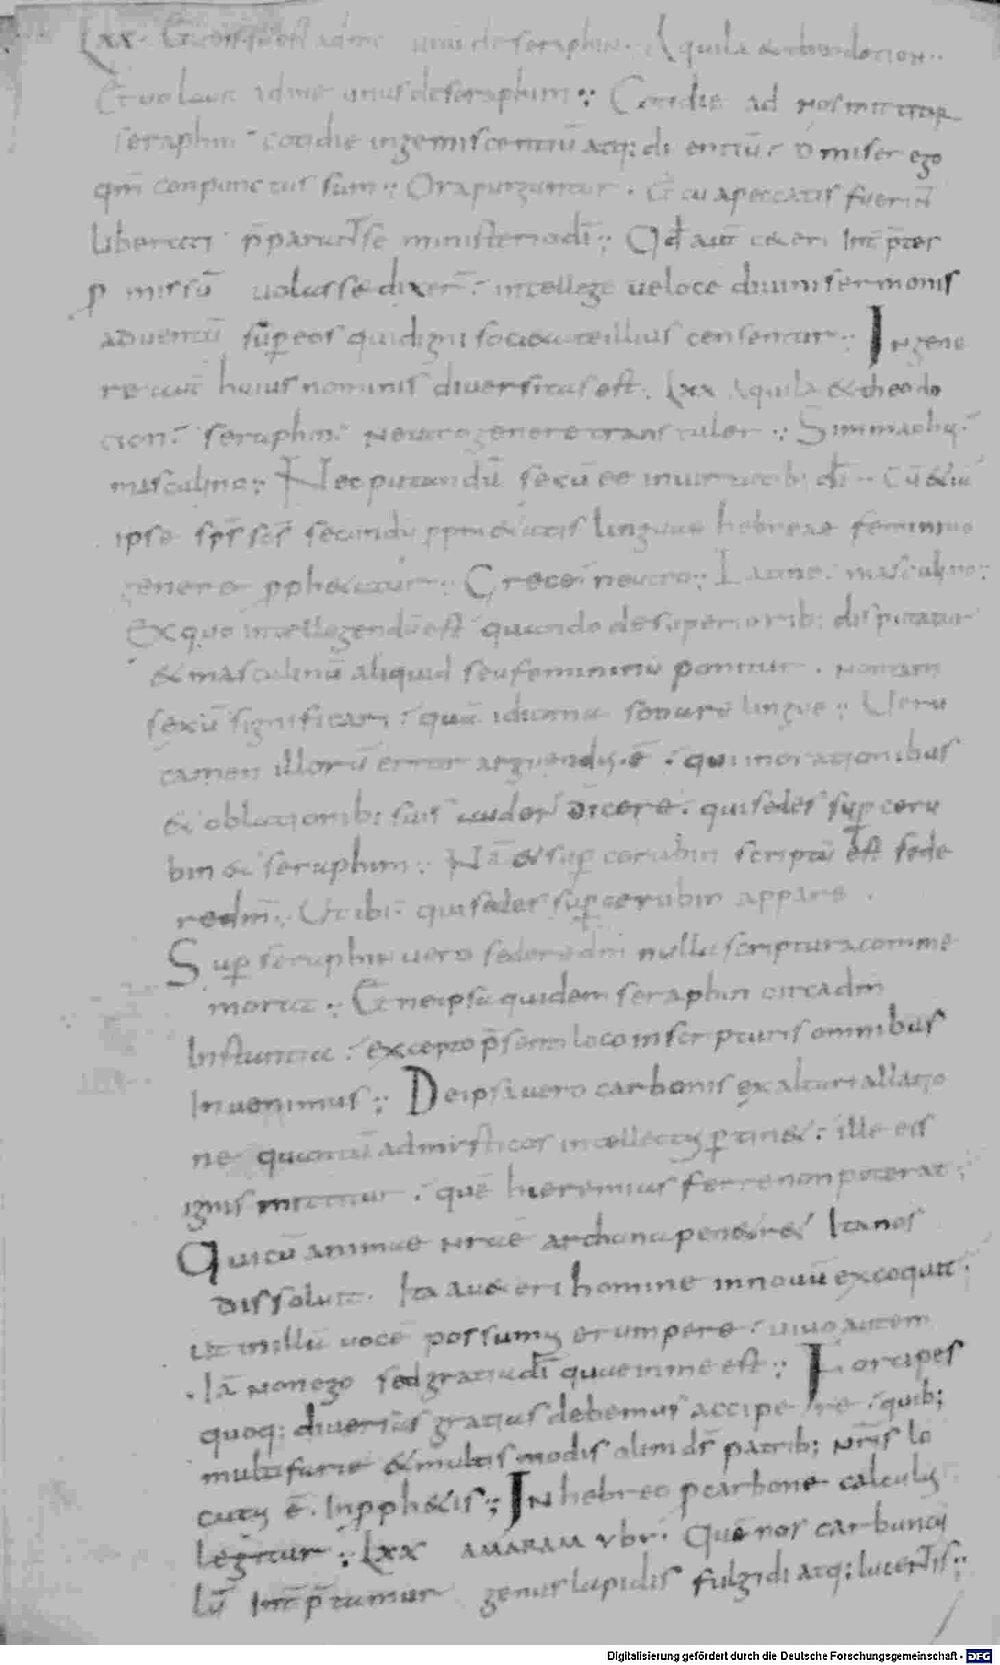 Lxx. Et missum est ad me unus de seraphin. Aquila & theodotion..
Et volavit ad me unus de seraphim :; Cotidie ad nos mittitur
seraphin cotidie ingemiscentiū atq; di entiū : O miser ego
qm̄ conpunctus sum :; Ora purgantur . Et cū a peccatis fuerint
liberati p̄parunt se ministerio dī :; Qđ aut̄ ceteri Int̄ p̄tes
p missū volasse dixer̄ : intellege veloce divini sermonis
adventū sup eos qui digni societate illius censentur :; In gene
re aut̄ huius nominis diversitas est. Lxx Aquila & theodo
tion : seraphin neutro genere transtuler :; Simmachus
masculino :; Nec putandū sexū ēē in virtutib; dī .. Cū &iā
ipse sps scs secundū pprietatis linguae hebreae feminino
genere pphetatur :; Grece neutro :; Latine masculino :;
Ex quo intellegendū est quando de superiorib: disputatur
& masculinū aliquid seu femininū ponitur . non tam
sexū significari : quā idioma sonare lingue :; Veru
tamen illorū error arguendus ē : qui in orationibus
& oblationib: suis audent dicere : qui sedes sup ceru
bin & seraphim :; Nā & sup cerubin scriptū est sede
re dm̄ :; Ut ibi : qui sedes sup cerubin appare .
Sup seraphin vero sedere dm̄ nulla scriptura comme
morat :; Et ne ipsa quidem seraphin circa dm̄
Instantia : excepto p̄senti loco in scripturis omnibus
Invenimus :; De ipsa vero carbonis ex altari allatio
ne quantū ad misticos intellectus ptin& : ille eis
ignis mittitur . quē hieremias ferre non poterat ;
Qui cū animae nrae archana penetr& Ita nos
dissoluit . Ita a veteri homine in novū excoquit .
ut in illā vocē possumus erumpere : vivo autem
. Iā non ego sed gratia dī quae in me est :; Forcipes
quoq; diversas gratias debemus accipere : quib;
multifarie & multis modis olim ds patrib; nris lo
cutus ē . In pph&is :; In hebreo p carbone calculus
legitur :; Lxx . Quē nos carbuncu
lū Int̄p̄tamur genus lapidis fulgidi atq; lucentis :;
Digitalisierung gefördert durch die Deutsche Forschungsgemeinschaft - DFG